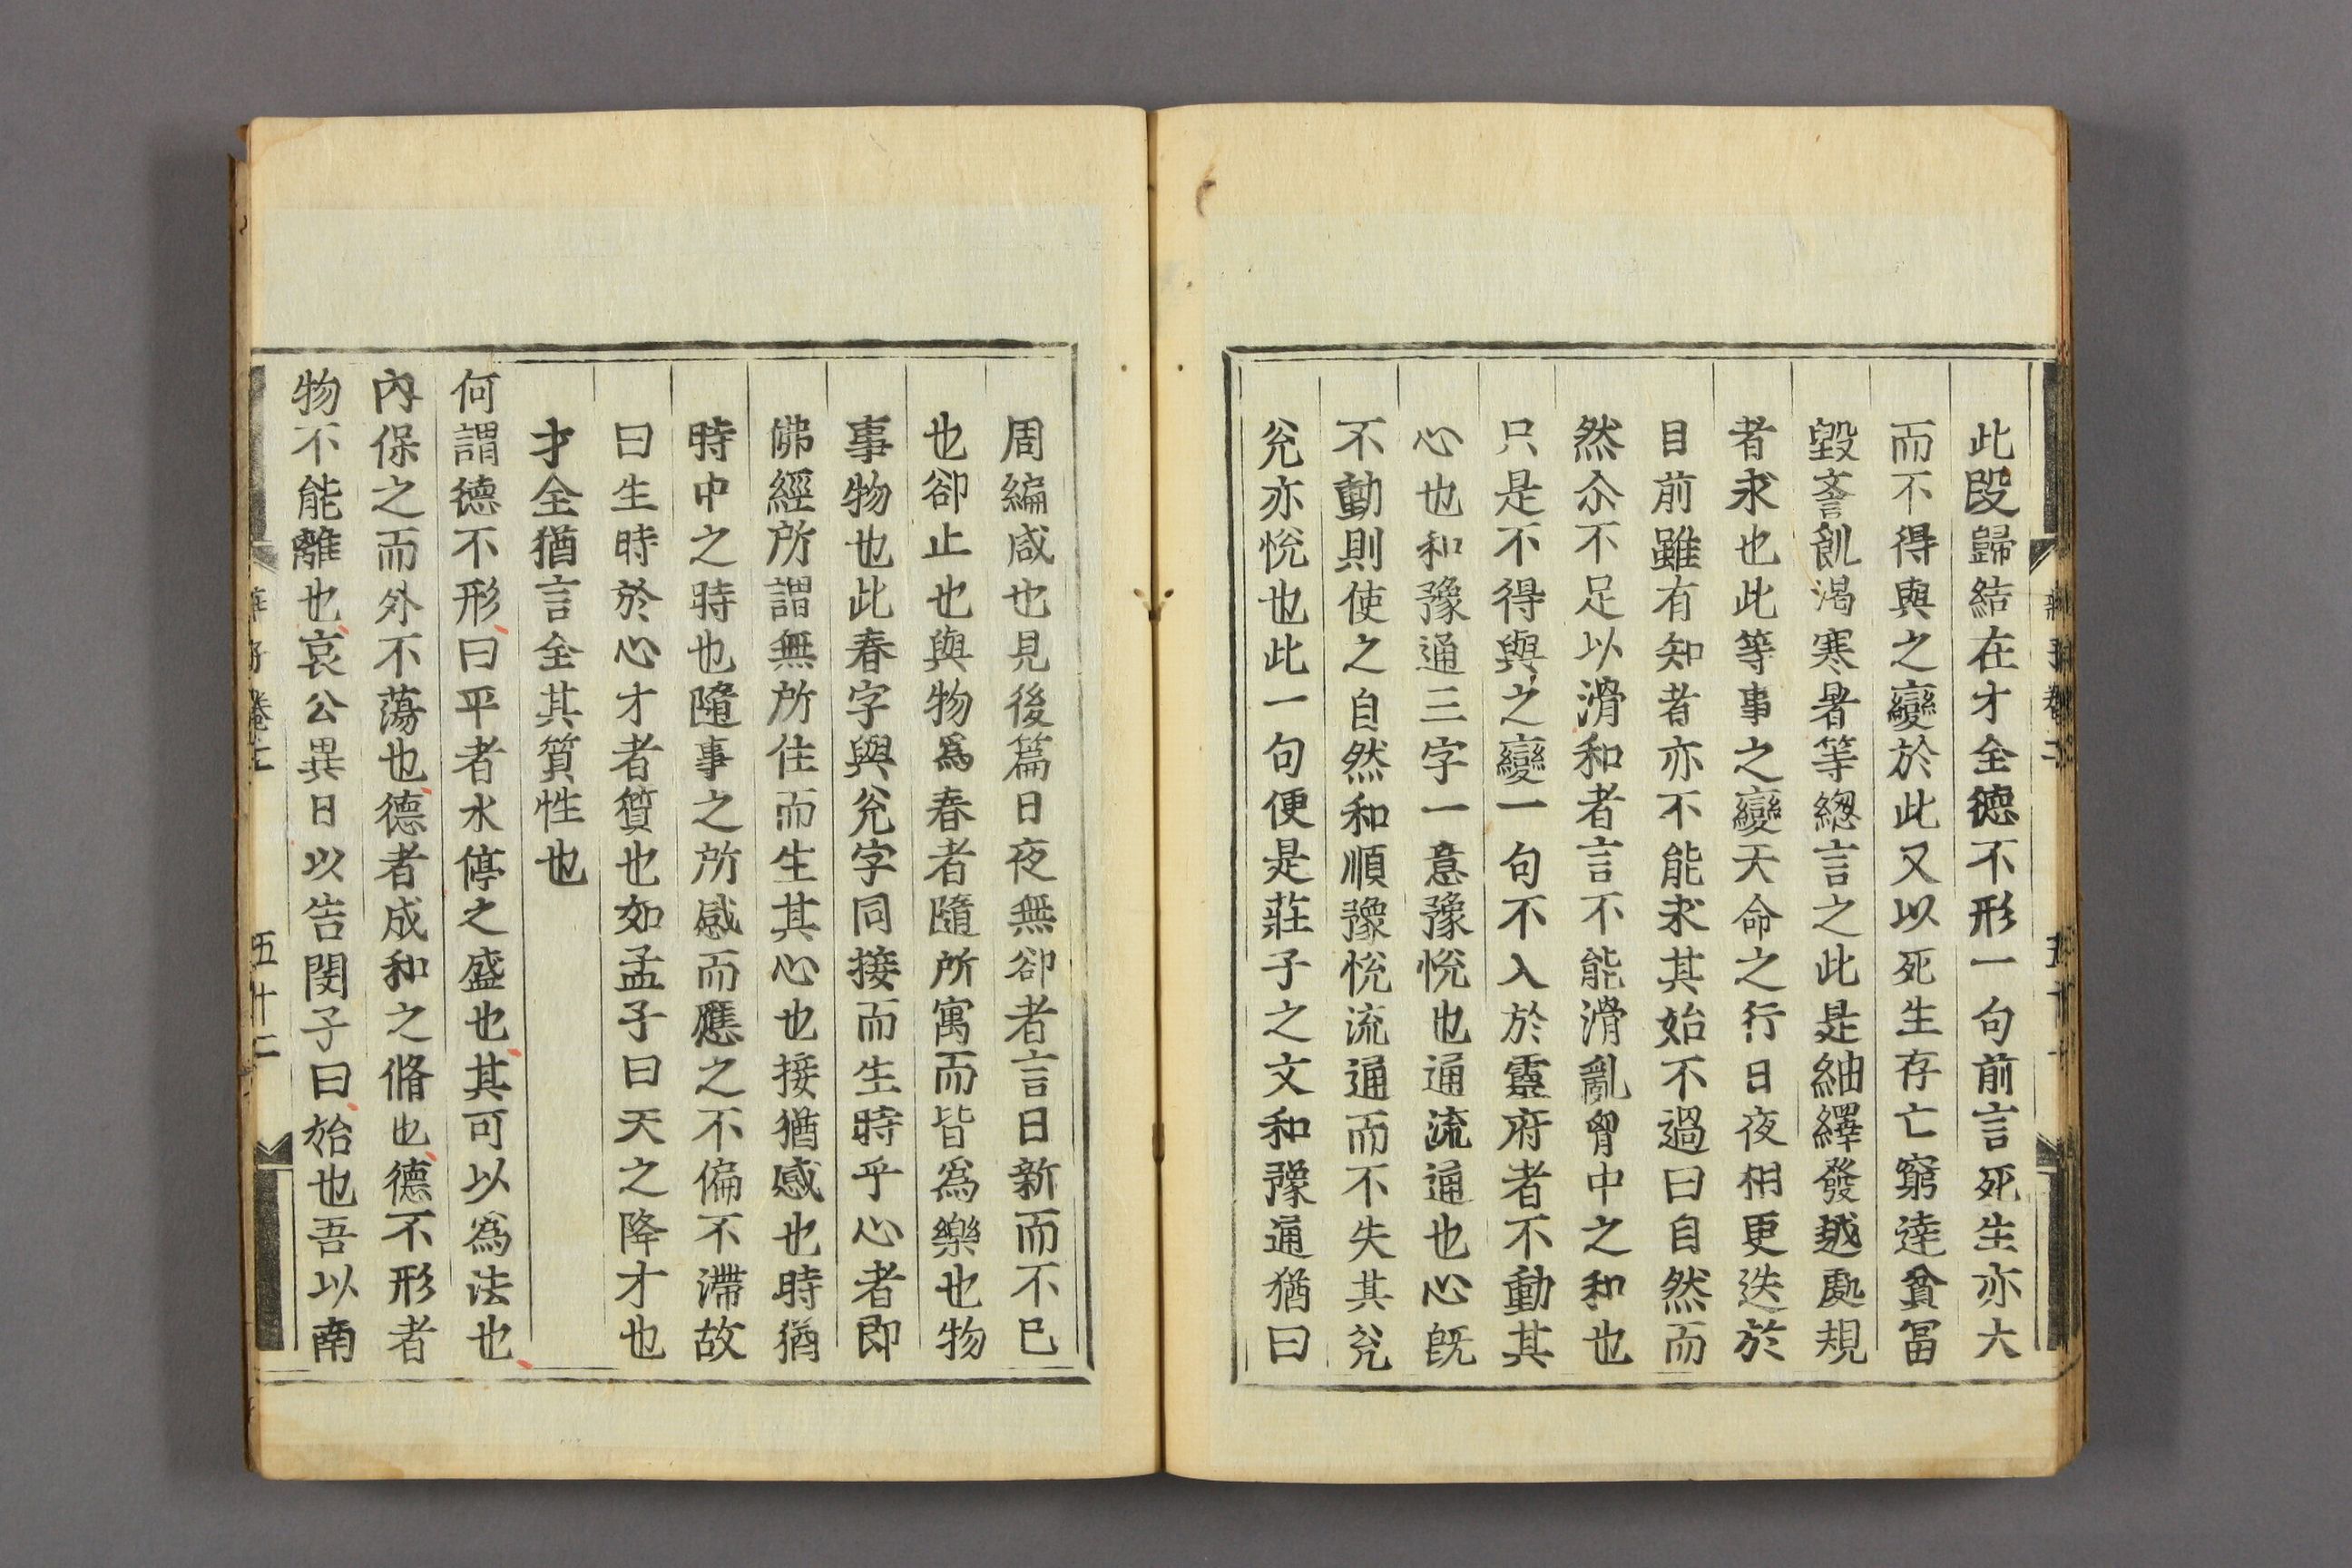 此段歸結在才全德不形一句前言死生亦大
而不得與之變於此又以死生存亡窮達貧冨
毀䜟飢渴寒暑等緫言之此是紬繹發越處規
者求也此等事之變天命之行日夜相更迭於
目前雖有知者亦不能求其始不過曰自然而
然尒不足以滑和者言不能滑亂胷中之和也
只是不得與之變一句不入於靈府者不動其
心也和豫通三字一意豫恱也通流通也心旣
不動則使之自然和順豫恱流通而不失其兊
兊亦恱也此一句便是莊子之文和豫通猶曰
周編咸也見後篇日夜無卻者言日新而不已
也卻止也與物爲春者隨所寓而皆爲樂也物
事物也此春字與兊字同接而生時乎心者即
佛經所謂無所住而生其心也接猶感也時猶
時中之時也隨事之所感而應之不偏不滯故
曰生時於心才者質也如孟子曰天之降才也
才全猶言全其質性也
何謂德不形曰平者水停之盛也其可以爲法也
內保之而外不蕩也德者成和之脩也德不形者
物不能離也哀公異日以告閔子曰始也吾以南
五十二